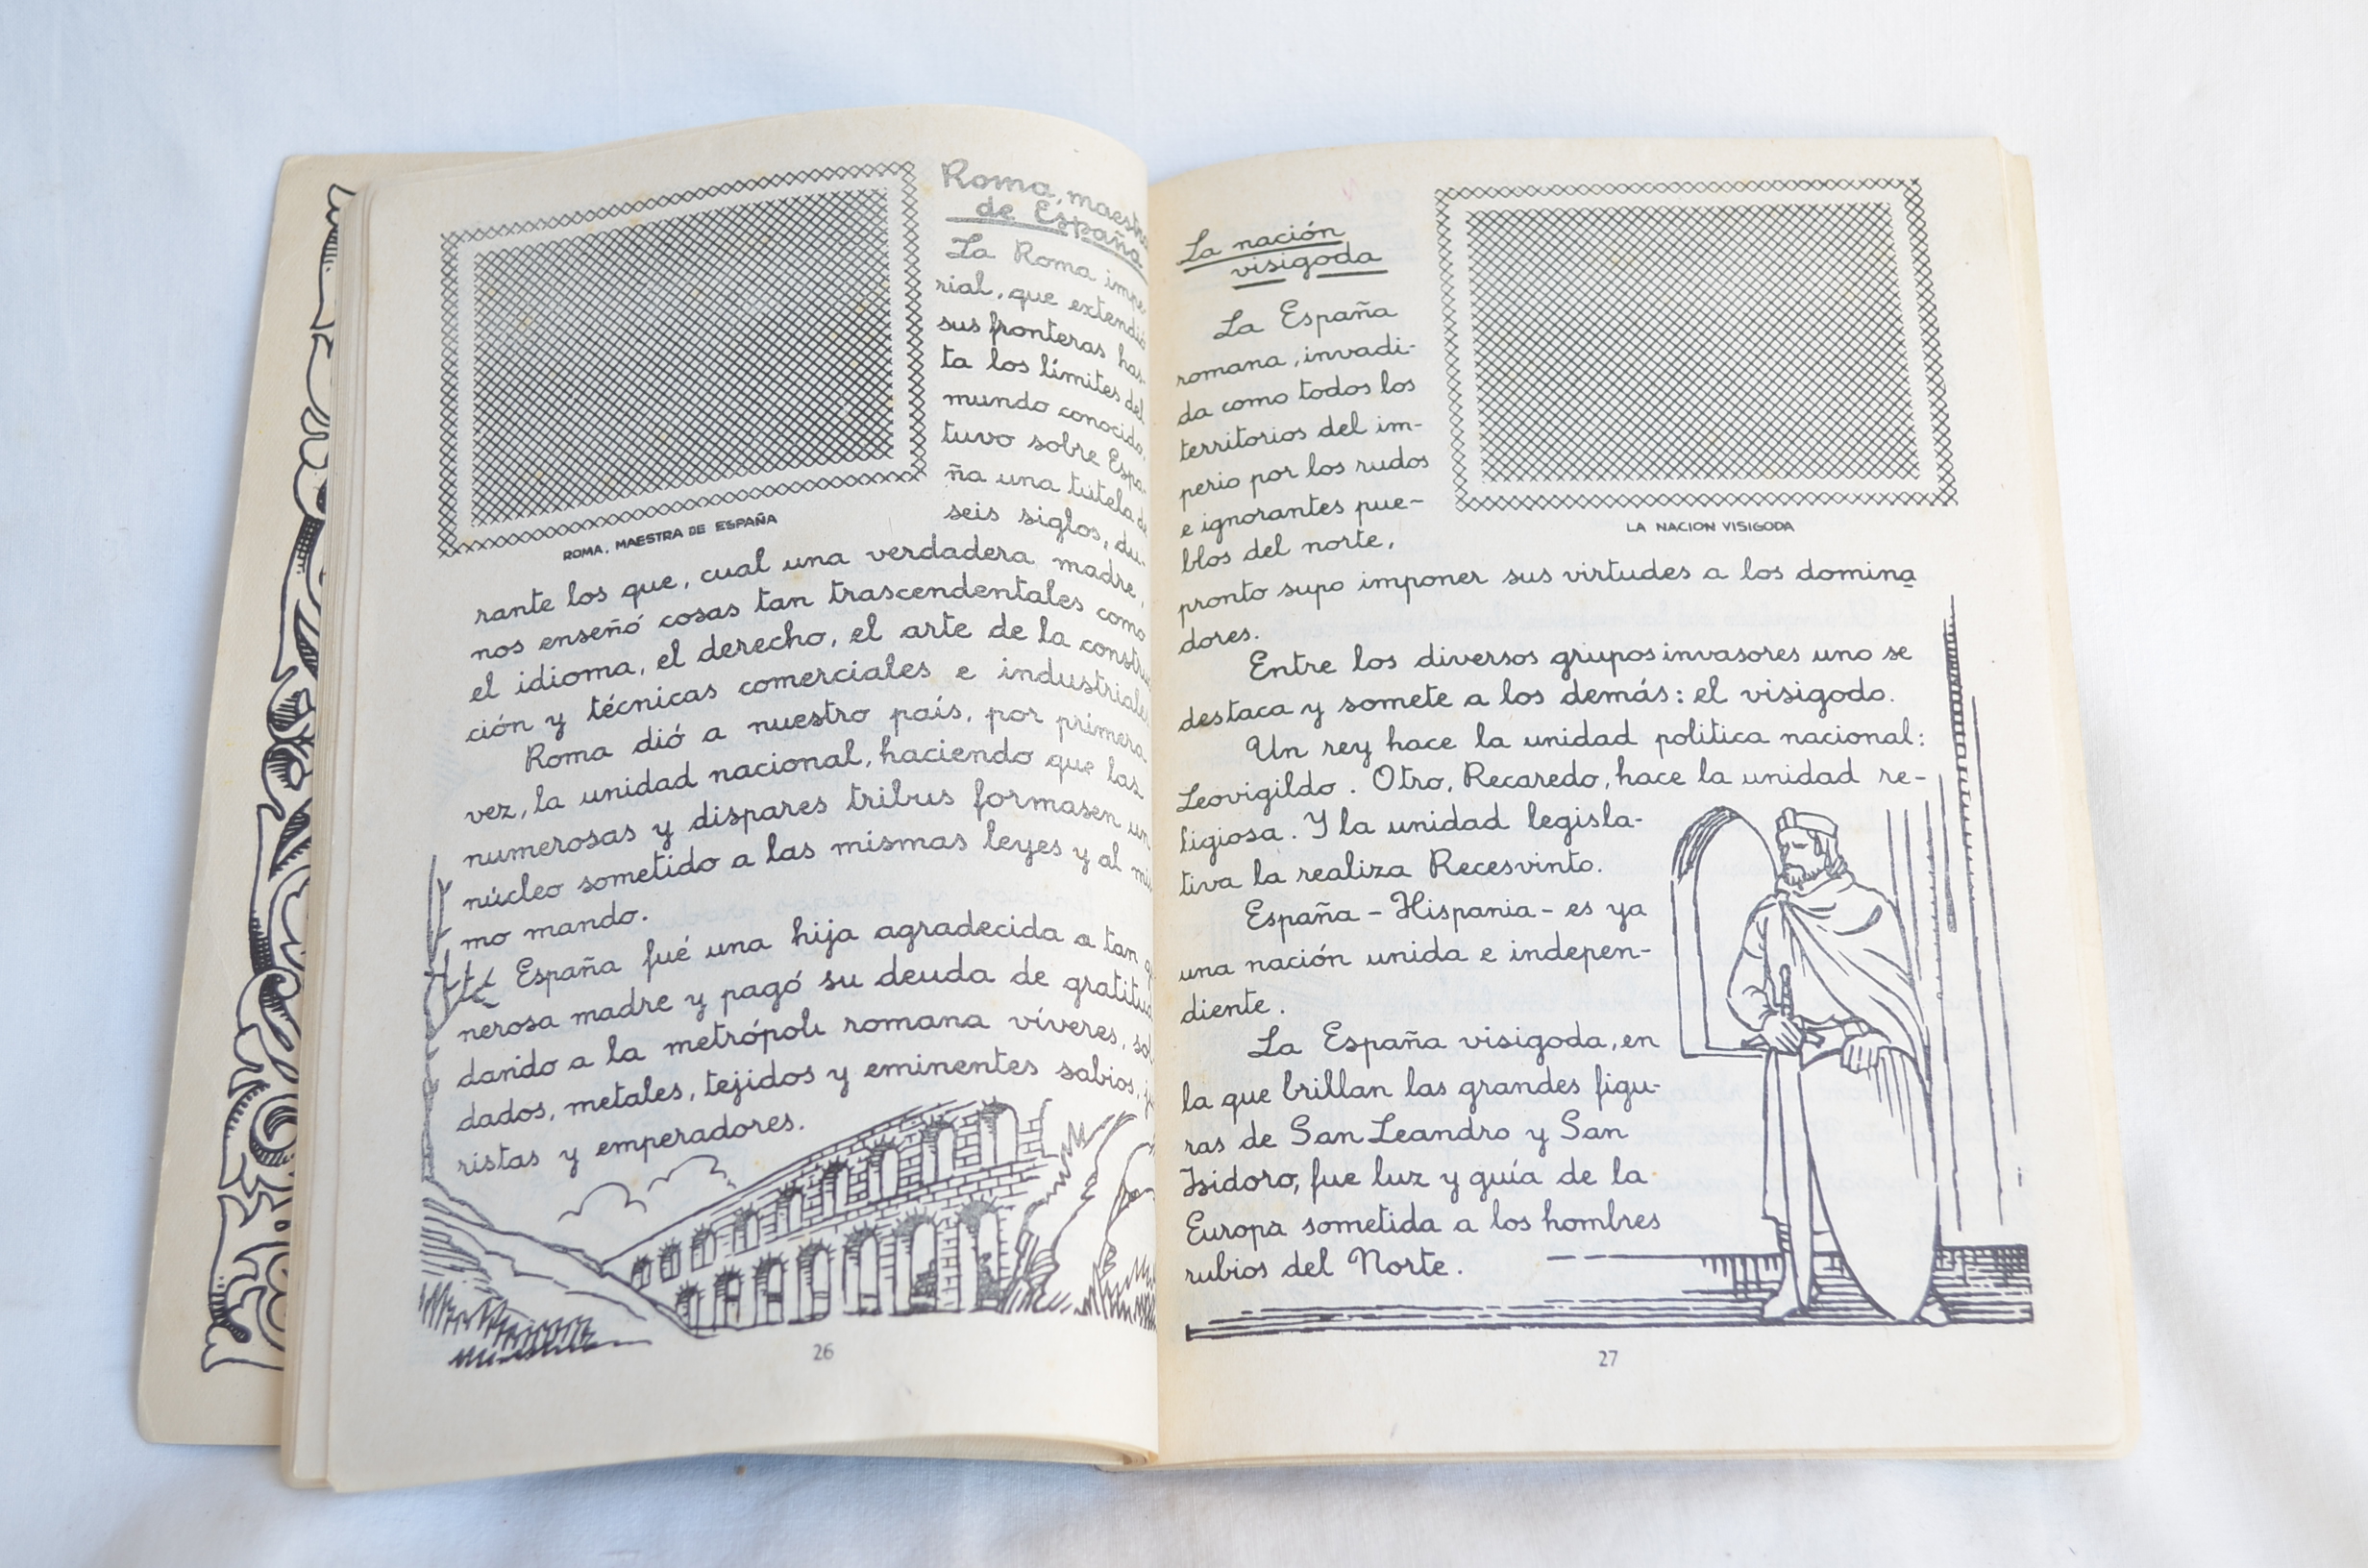 Roma, maestra
de España
La Roma impe-
rial, que extendió
sus fronteras has-
ta los límites del
mundo conocido,
tuvo sobre Espa-
ña una tutela de
seis siglos, du-
ROMA, MAESTRA DE ESPAÑA
rante los que, cual una verdadera madre,
nos enseñó cosas tan trascendentales como
el idioma, el derecho, el arte de la construc
ción y técnicas comerciales e industriales
Roma dió a nuestro país, por primera
vez, la unidad nacional, haciendo que las
numerosas y dispares tribus formasen un
núcleo sometido a las mismas leyes y al mis
mo mando.
España fué una hija agradecida a tan ge
nerosa madre y pagó su deuda de gratitud
dando a la metrópoli romana víveres, sol
dados, metales, tejidos y eminentes sabios, ju
ristas y emperadores.
26
La nación
visigoda
La España
romana, invadi-
da como todos los
territorios del im-
perio por los rudos
e ignorantes pue-
blos del norte,
LA NACION VISIGODA
pronto supo imponer sus virtudes a los domina
dores.
Entre los diversos grupos invasores uno se
destaca y somete a los demás: el visigodo.
Un rey hace la unidad politica nacional:
Leovigildo. Otro, Recaredo, hace la unidad re-
ligiosa. Y la unidad legisla-
tiva la realiza Recesvinto.
España - Hispania - es ya
una nación unida e indepen-
diente.
La España visigoda, en
la que brillan las grandes figu-
ras de San Leandro y San
Isidoro, fue luz y guía de la
Europa sometida a los hombres
rubios del Norte.
27